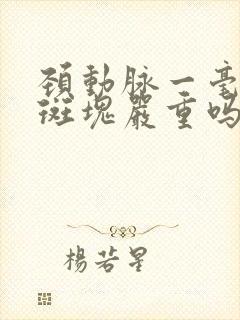 頚動脉一毫
斑塊嚴重吗
楊若星